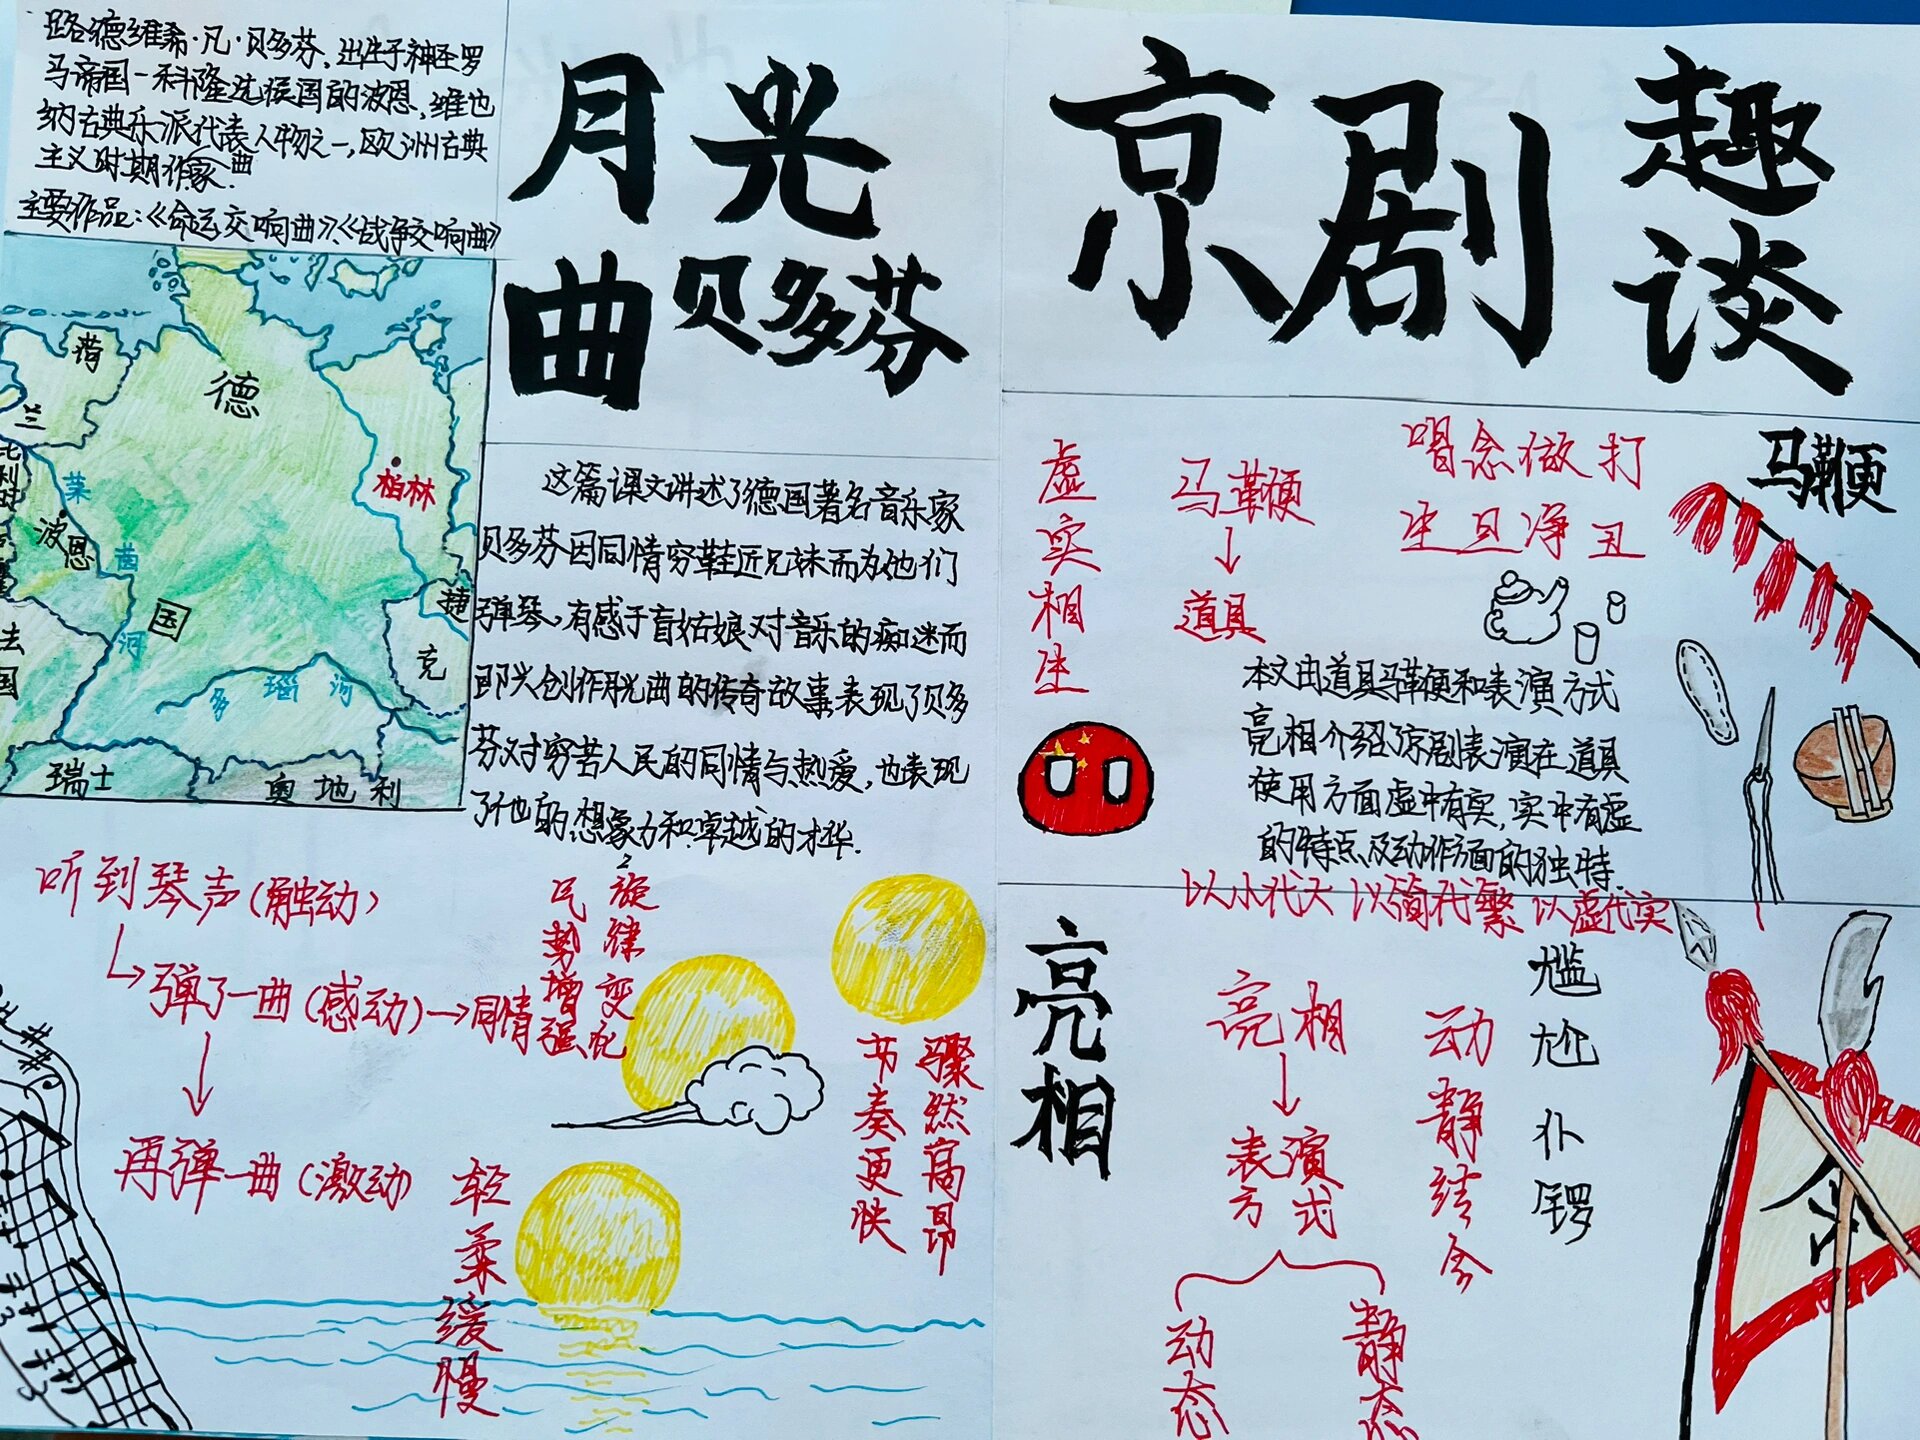 路德维希·凡·贝多芬，出生于神圣罗
马帝国-科隆选侯国的波恩，维也
纳古典乐派代表人物之一，欧洲古典
主义时期作曲家.
主要作品：《命运交响曲》、《战争交响曲》
月光
曲 贝多芬
荷
兰
德
国
比利时
柏林
莱
茵
河
波恩
捷
克
法
国
多瑙河
瑞士
奥地利
这篇课文讲述了德国著名音乐家
贝多芬因同情穷鞋匠兄妹而为他们
弹琴、有感于盲姑娘对音乐的痴迷而
即兴创作月光曲的传奇故事表现了贝多
芬对穷苦人民的同情与热爱，也表现
了他的想象力和卓越的才华.
听到琴声（触动）
弹了一曲（感动）→同情
再弹一曲（激动）
轻柔缓慢
气势增强
旋律变化
节奏更快
骤然高昂
京剧
趣谈
虚实相生
马鞭
↓
道具
唱念做打
生旦净丑
马鞭
本文由道具马鞭和表演方式
亮相介绍了京剧表演在道具
使用方面虚中有实，实中有虚
的特点及动作方面的独特.
以小代大 以简代繁 以虚代实
亮相
亮相
↓
表演
方式
动态
静态
动静结合
尴
尬
仆
锣